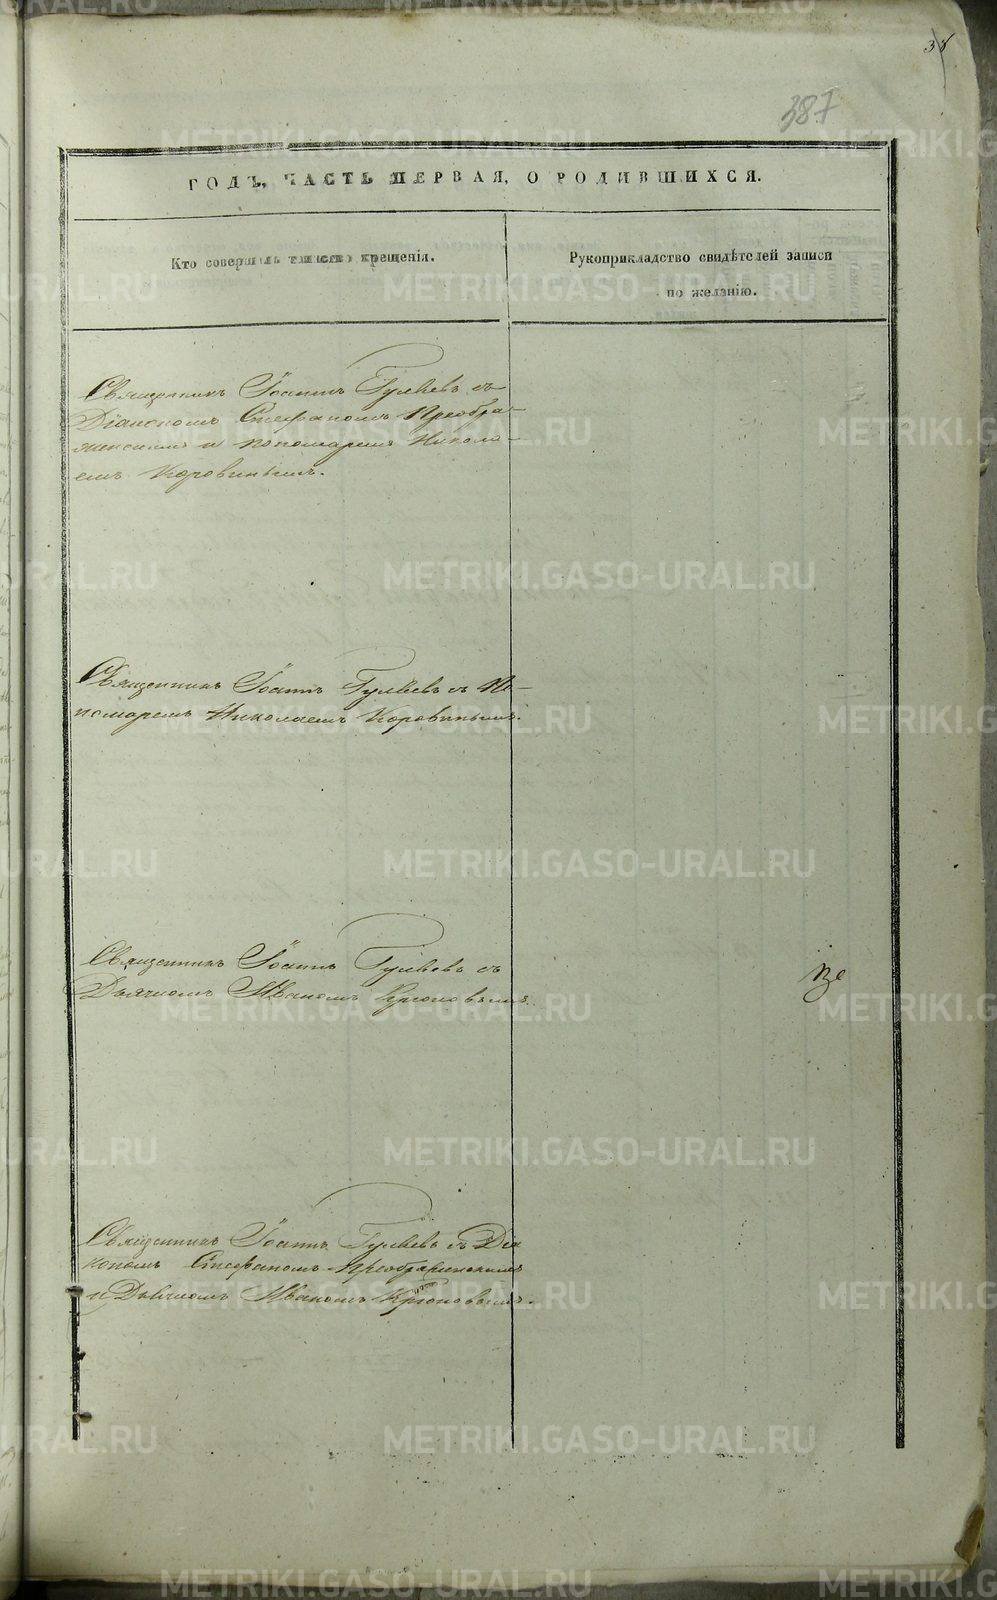 38
387
ГОДЪ, ЧАСТЬ ПЕРВАЯ, О РОДИВШИХСЯ.
Кто совершалъ таинство крещенія.
Рукоприкладство свидѣтелей записи
по желанію.
Священникъ Іоаннъ Гуляевъ съ
Діакономъ Стефаномъ Преобра-
женскимъ и пономаремъ Никола-
емъ Коровинымъ.
Священникъ Іоаннъ Гуляевъ съ По-
номаремъ Николаемъ Коровинымъ.
Священникъ Іоаннъ Гуляевъ съ
Дьячкомъ Иваномъ Крюковымъ.
Священникъ Іоаннъ Гуляевъ съ Діа
кономъ Стефаномъ Преображенскимъ
и Дьячкомъ Иваномъ Крюковымъ.
METRIKI.GASO-URAL.RU